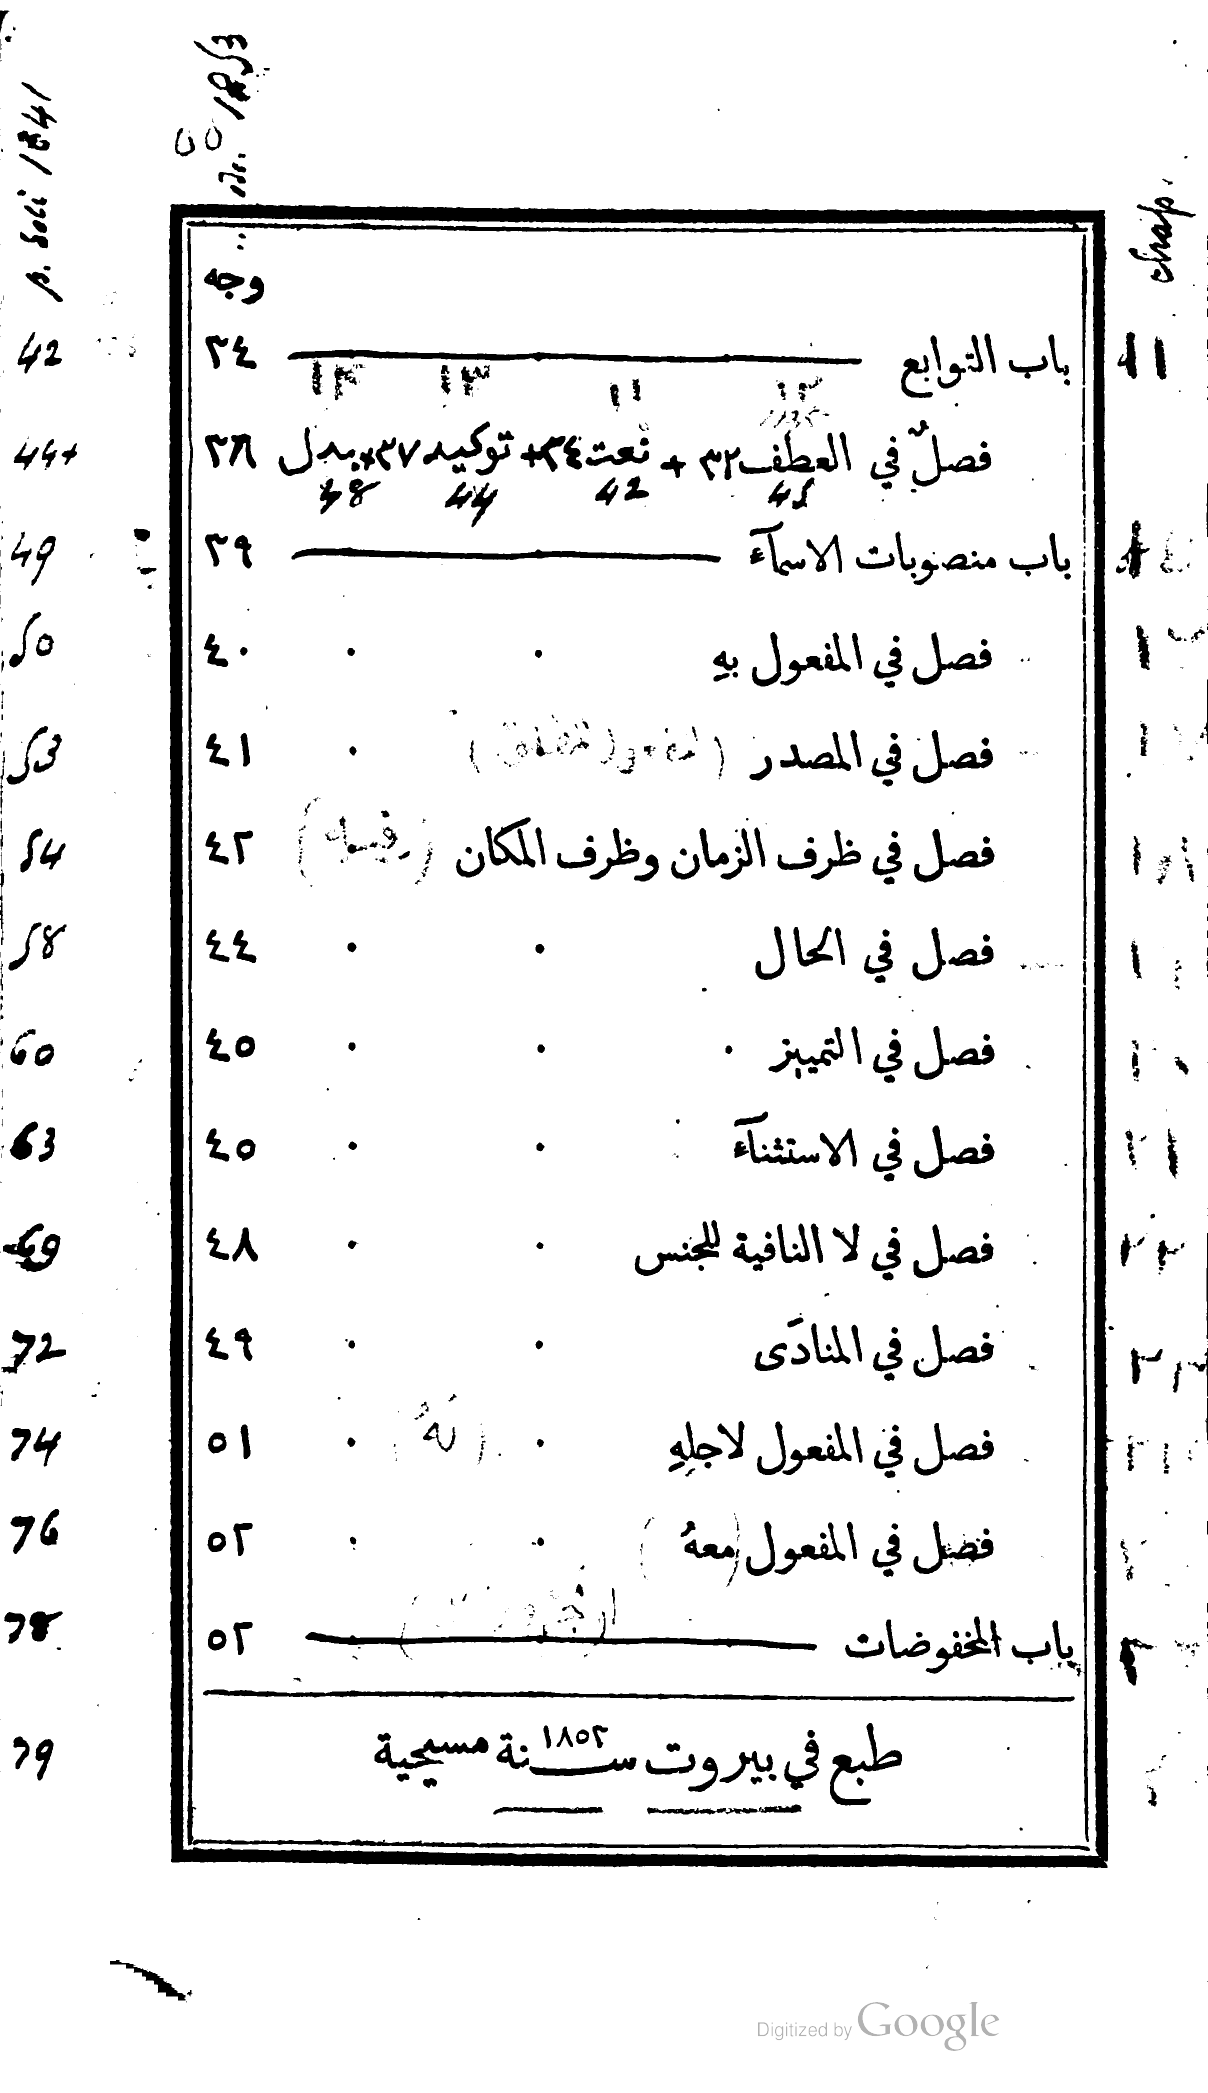 وجه
باب التوابع ٣٤ 42
فصلٌ في العطف ٣٢ + نعت ٣٤ + توكيد ٣٧ + بدل ٣٨ 44+
41 42 44 48
باب منصوبات الاسمآء ٣٩ 49
فصل في المفعول بهِ ٤٠ 50
فصل في المصدر (المفعول المطلق) ٤١ 53
فصل في ظرف الزمان وظرف المكان ٤٢ 54
فصل في الحال ٤٤ 58
فصل في التمييز ٤٥ 60
فصل في الاستثنآء ٤٥ 63
فصل في لا النافية للجنس ٤٨ 69
فصل في المنادَى ٤٩ 72
فصل في المفعول لاجلهِ (لهُ) ٥١ 74
فصل في المفعول معهُ ٥٢ 76
باب المخفوضات ٥٢ 78
79
طبع في بيروت سنة ١٨٥٢ مسيحية
Digitized by Google